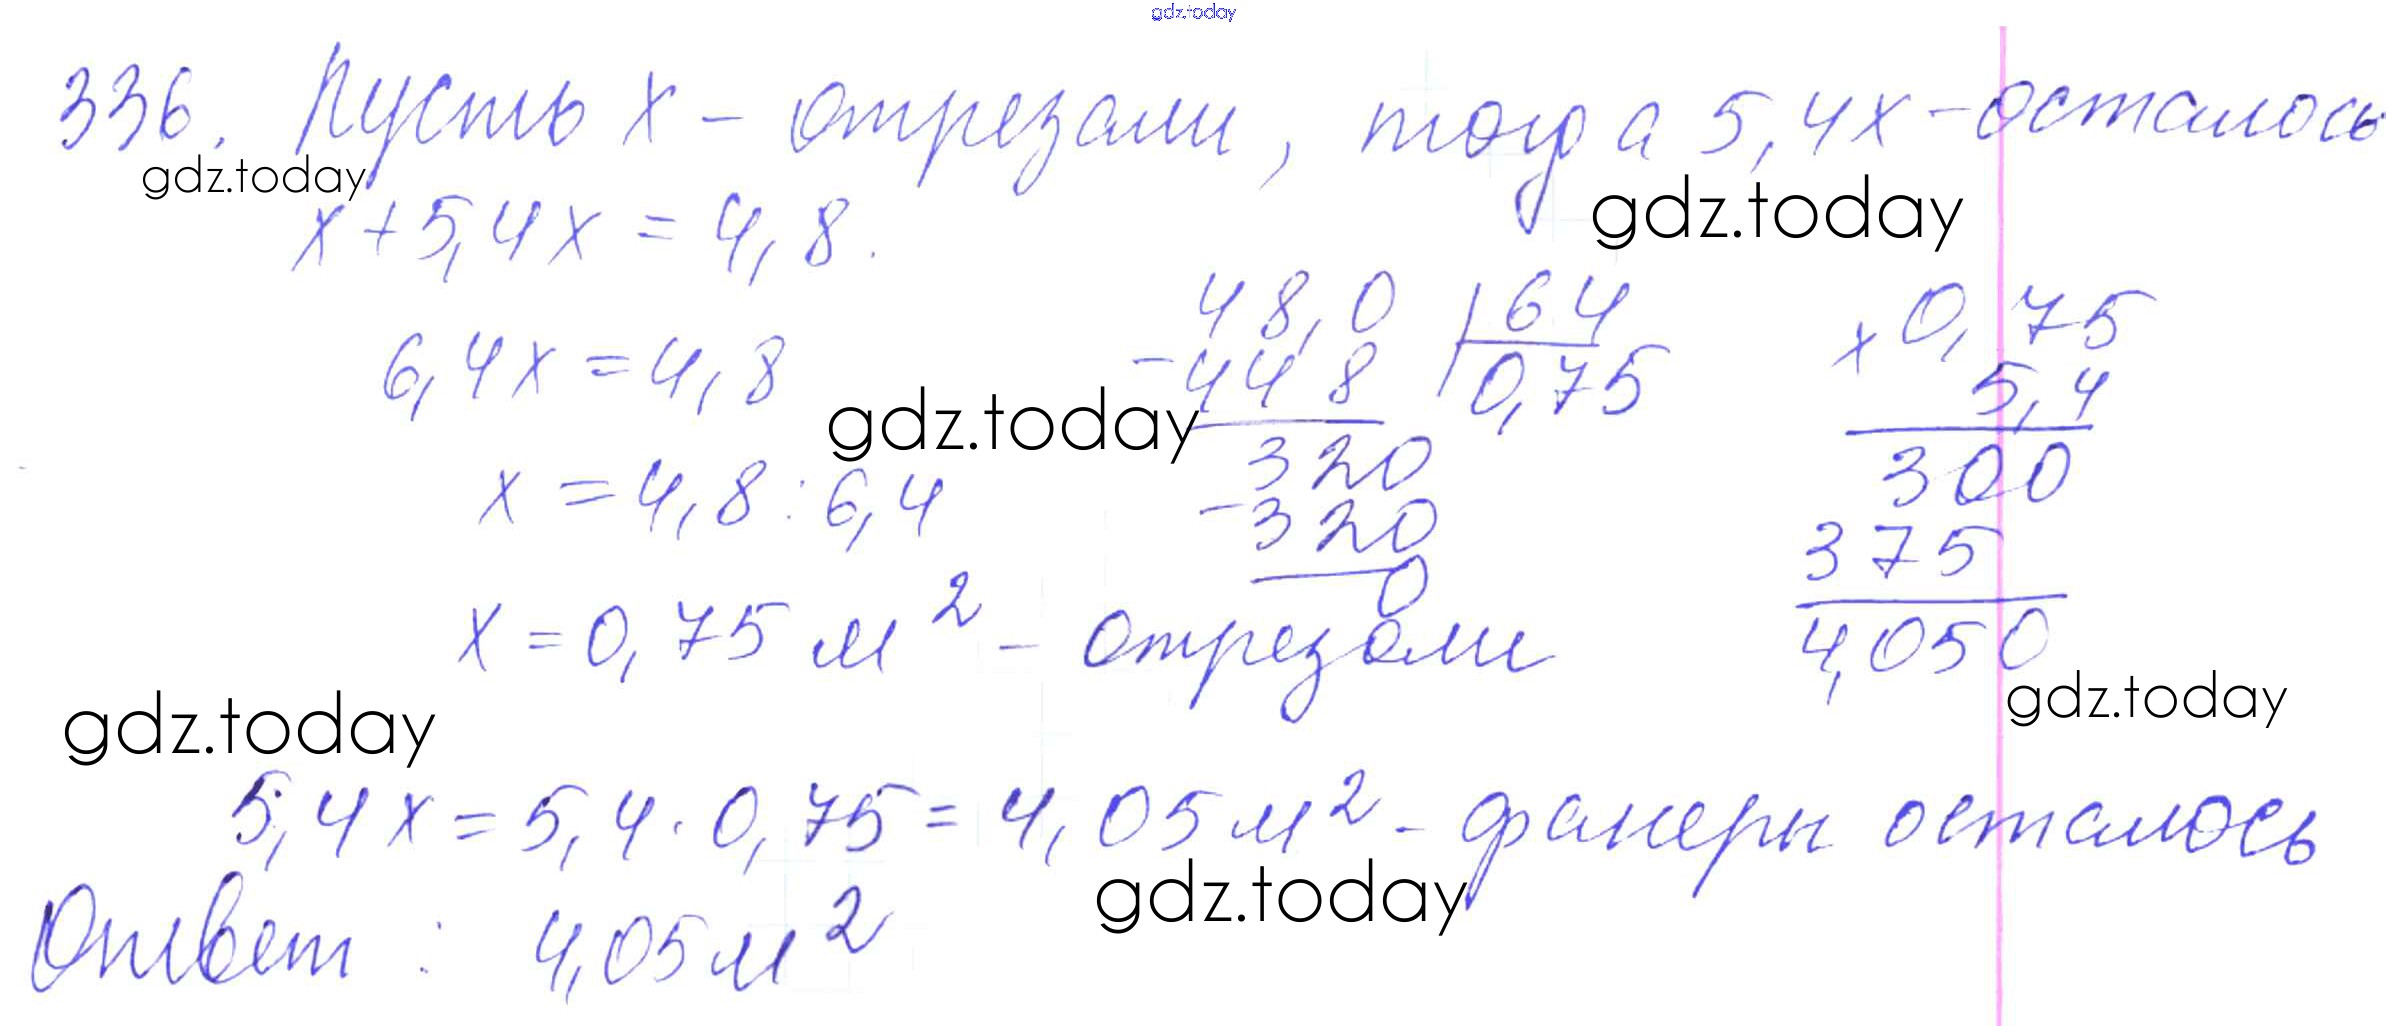 gdz.today
336. Пусть x - отрезали, тогда 5,4x - осталось
gdz.today
gdz.today
x + 5,4x = 4,8.
6,4x = 4,8
gdz.today
x = 4,8 : 6,4
x = 0,75 м² - отрезали
48,0 | 64
- 448 0,75
320
- 320
0
× 0,75
5,4
300
375
4,050
gdz.today
gdz.today
5,4x = 5,4 · 0,75 = 4,05 м² - фанеры осталось
gdz.today
Ответ : 4,05 м²